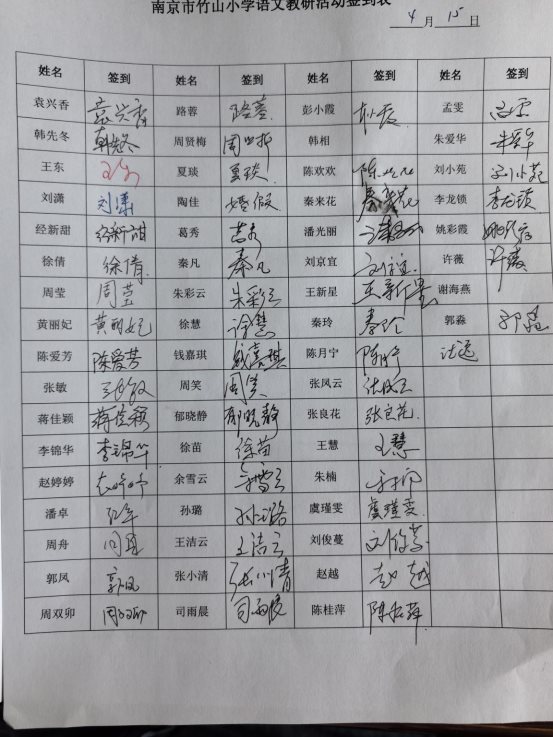 南京市竹山小学语文教研活动签到表
4月15日
姓名 签到 姓名 签到 姓名 签到 姓名 签到
袁兴香 袁兴香 路蓉 路蓉 彭小霞 孟雯 孟雯
韩先冬 韩先冬 周贤梅 韩相 朱爱华 朱爱华
王东 夏琰 夏琰 陈欢欢 刘小苑
刘潇 刘潇 陶佳 婚假 秦来花 秦来花 李龙锁 李龙锁
经新甜 经新甜 葛秀 潘光丽 姚彩霞 姚彩霞
徐倩 徐倩 秦凡 秦凡 刘京宜 许薇 许薇
周莹 周莹 朱彩云 朱彩云 王新星 王新星 谢海燕
黄丽妃 黄丽妃 徐慧 徐慧 秦玲 秦玲 郭淼 郭淼
陈爱芳 陈爱芳 钱嘉琪 钱嘉琪 陈月宁
张敏 张敏 周笑 周笑 张凤云 张凤云
蒋佳颖 蒋佳颖 郁晓静 郁晓静 张良花 张良花
李锦华 李锦华 徐苗 徐苗 王慧 王慧
赵婷婷 余雪云 朱楠
潘卓 孙璐 孙璐 虞瑾雯 虞瑾雯
周舟 王洁云 王洁云 刘俊蔓
郭凤 郭凤 张小清 张小清 赵越 赵越
周双卯 周双卯 司雨晨 司雨晨 陈桂萍 陈桂萍